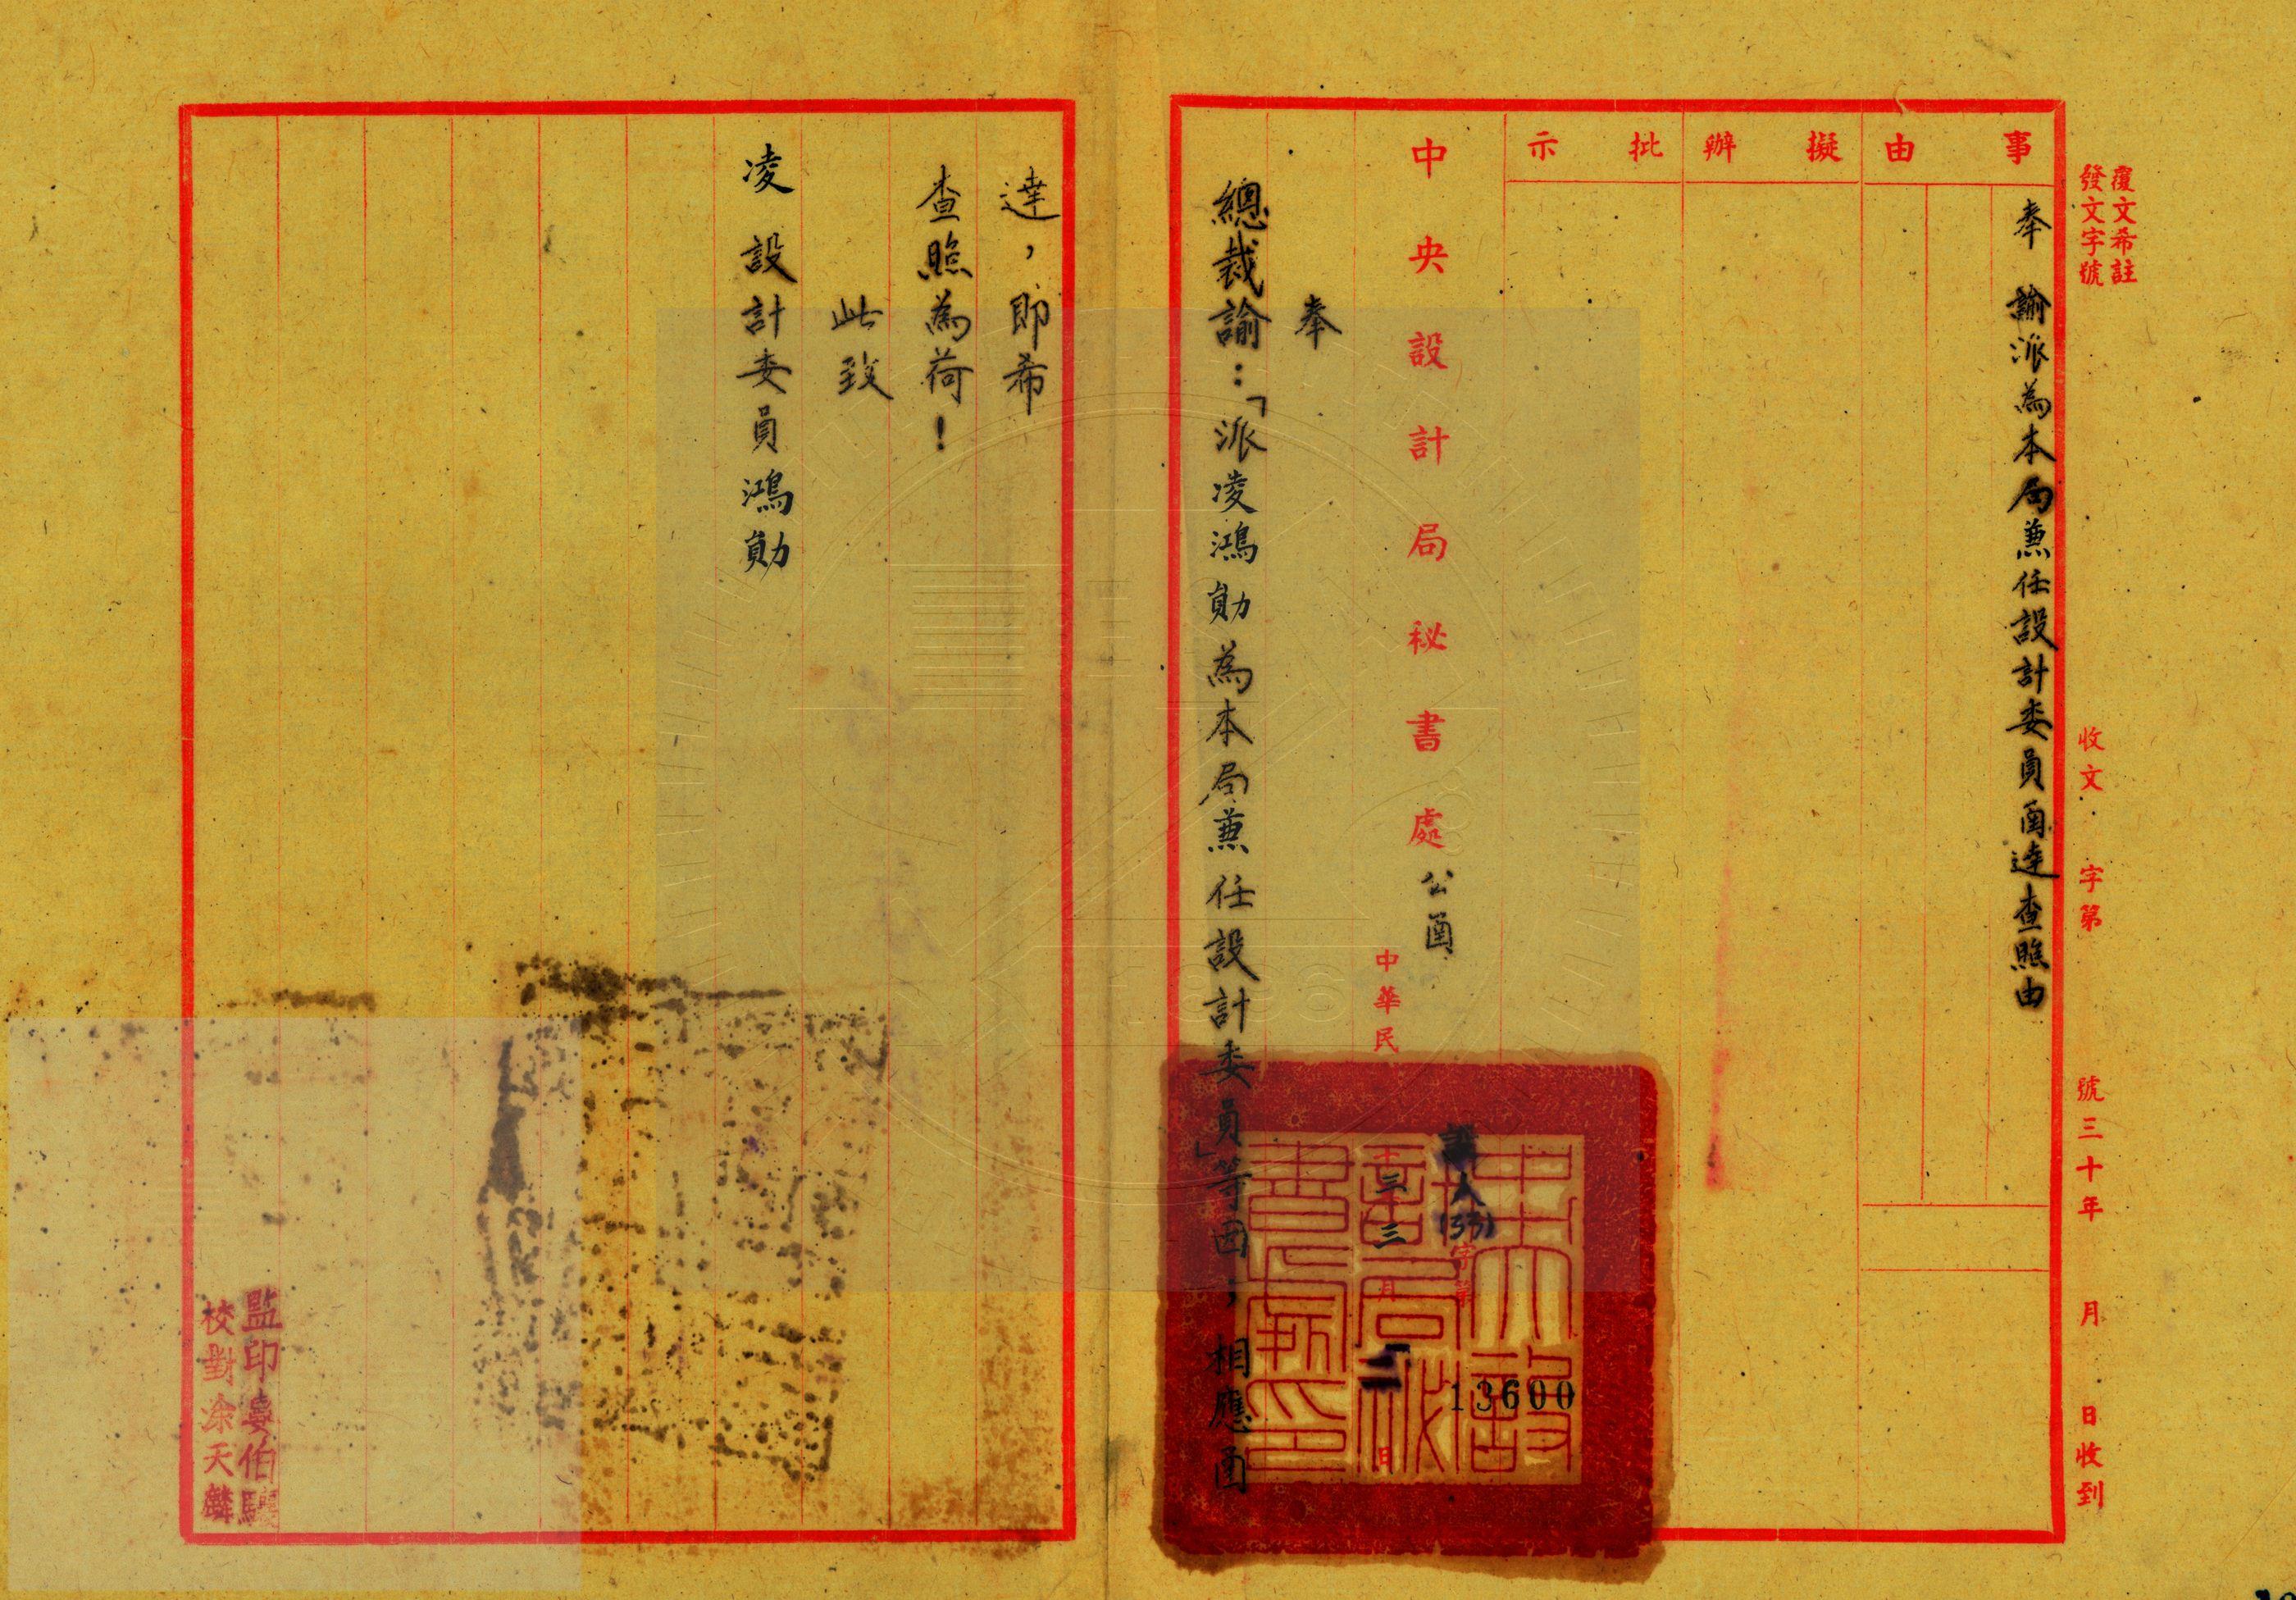 覆文希註
發文字號
收文 字第 號 三十 年 月 日收到
事由
奉 諭派為本局兼任設計委員函達查照由
擬辦
批示
中央設計局秘書處公函
人(33)字第13600
中華民 十三 三月二日
奉
總裁諭:「派凌鴻勛為本局兼任設計委員」等因,相應函
達,即希
查照為荷!
此致
凌設計委員鴻勛
監印婁伯驤
校對涂天麟